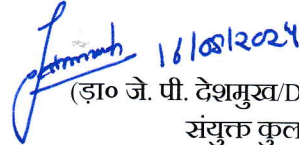 16/08/2024
(ड़ा० जे. पी. देशमुख/D
संयुक्त कुल